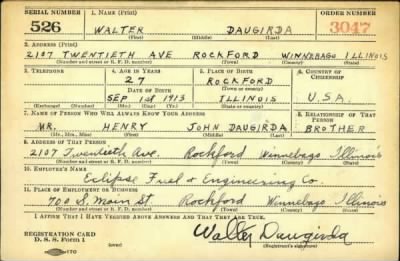 SERIAL NUMBER 1. NAME (Print) ORDER NUMBER
526 WALTER DAUGIRDA 3047
(First) (Middle) (Last)
2. ADDRESS (Print)
2107 TWENTIETH AVE ROCKFORD WINNEBAGO ILLINOIS
(Number and street or R. F. D. number) (Town) (County) (State)
3. TELEPHONE 4. AGE IN YEARS 5. PLACE OF BIRTH 6. COUNTRY OF CITIZENSHIP
27 ROCKFORD
DATE OF BIRTH (Town or county)
SEP 1st 1913 ILLINOIS U.S.A.
(Exchange) (Number) (Mo.) (Day) (Yr.) (State or country)
7. NAME OF PERSON WHO WILL ALWAYS KNOW YOUR ADDRESS 8. RELATIONSHIP OF THAT PERSON
MR. HENRY JOHN DAUGIRDA BROTHER
(Mr., Mrs., Miss) (First) (Middle) (Last)
9. ADDRESS OF THAT PERSON
2107 Twentieth Ave. Rockford Winnebago Illinois
(Number and street or R. F. D. number) (Town) (County) (State)
10. EMPLOYER'S NAME
Eclipse Fuel & Engineering Co
11. PLACE OF EMPLOYMENT OR BUSINESS
700 S. Main St. Rockford Winnebago Illinois
(Number and street or R. F. D. number) (Town) (County) (State)
I AFFIRM THAT I HAVE VERIFIED ABOVE ANSWERS AND THAT THEY ARE TRUE.
REGISTRATION CARD
D. S. S. Form 1 Walter Daugirda
(over) (Registrant's signature)